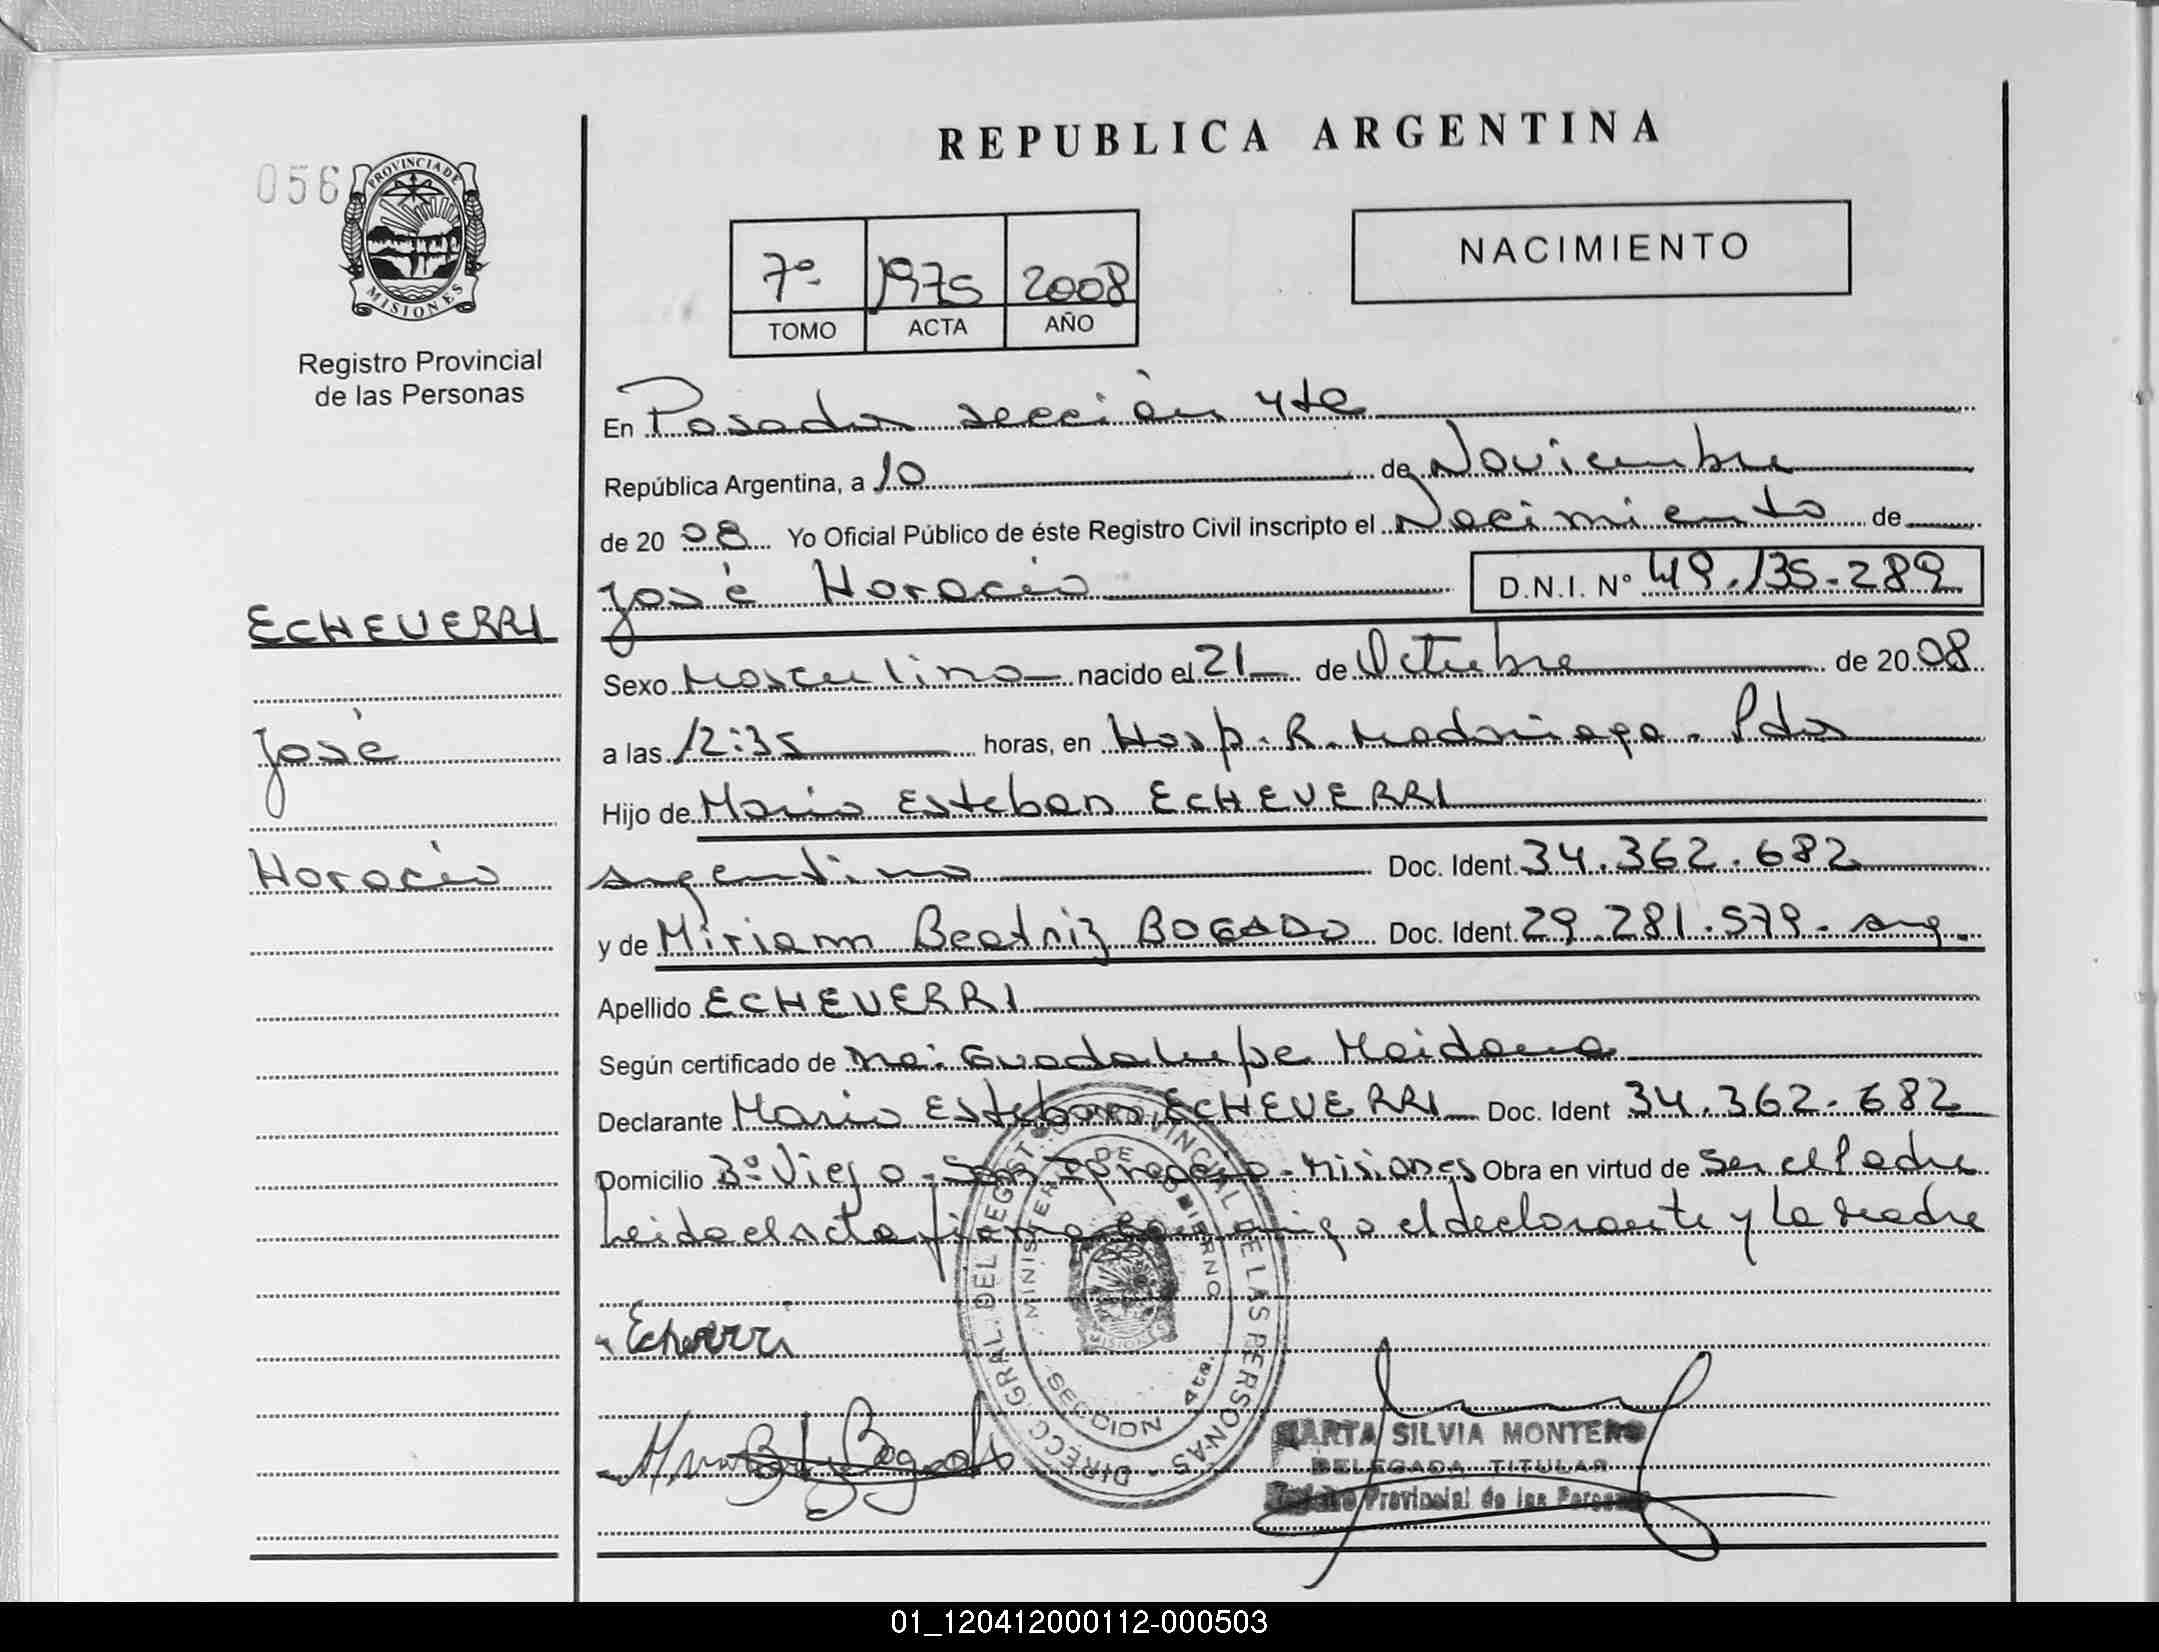 REPUBLICA ARGENTINA
056
PROVINCIA DE
MISIONES
Registro Provincial
de las Personas
7º 1975 2008
TOMO ACTA AÑO
NACIMIENTO
En Posadas sección 4ta
República Argentina, a 10 de Noviembre
de 20 08 Yo Oficial Público de éste Registro Civil inscripto el Nacimiento de
José Horacio D.N.I. Nº 49.135.289
ECHEVERRI
José
Horacio
Sexo Masculino nacido el 21 de Octubre de 20 08
a las 12:35 horas, en Hosp. R. Madariaga. Pdas
Hijo de Mario Esteban ECHEVERRI
argentino Doc. Ident. 34.362.682
y de Miriam Beatriz BOGADO Doc. Ident. 29.281.579. arg.
Apellido ECHEVERRI
Según certificado de Guadalupe Maidana
Declarante Mario Esteban ECHEVERRI Doc. Ident 34.362.682
Domicilio Bº Viejo - San Ignacio - Misiones Obra en virtud de ser el Padre
Leida el acta firma conmigo el declarante y la madre
DIRECC. GRAL. DEL REGISTRO PROVINCIAL DE LAS PERSONAS
MINISTERIO DE GOBIERNO
SECCION 4ta.
Echeverri
Bogado
MARTA SILVIA MONTERO
DELEGADA TITULAR
Registro Provincial de las Personas
01_120412000112-000503